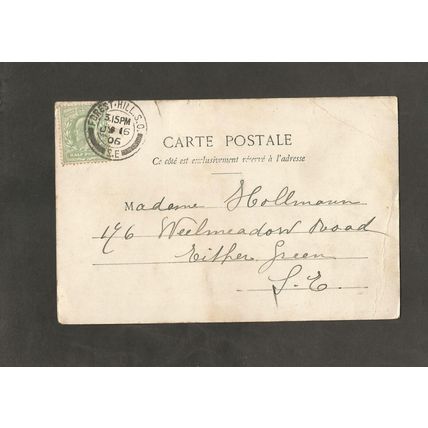 FOREST-HILL.S.O.
3.15PM
16
06
S.E
HALF
CARTE POSTALE
Ce côté est exclusivement réservé à l'adresse
Madame Hollmann
176 Weelmeadow Road
Hither Green
S.E.